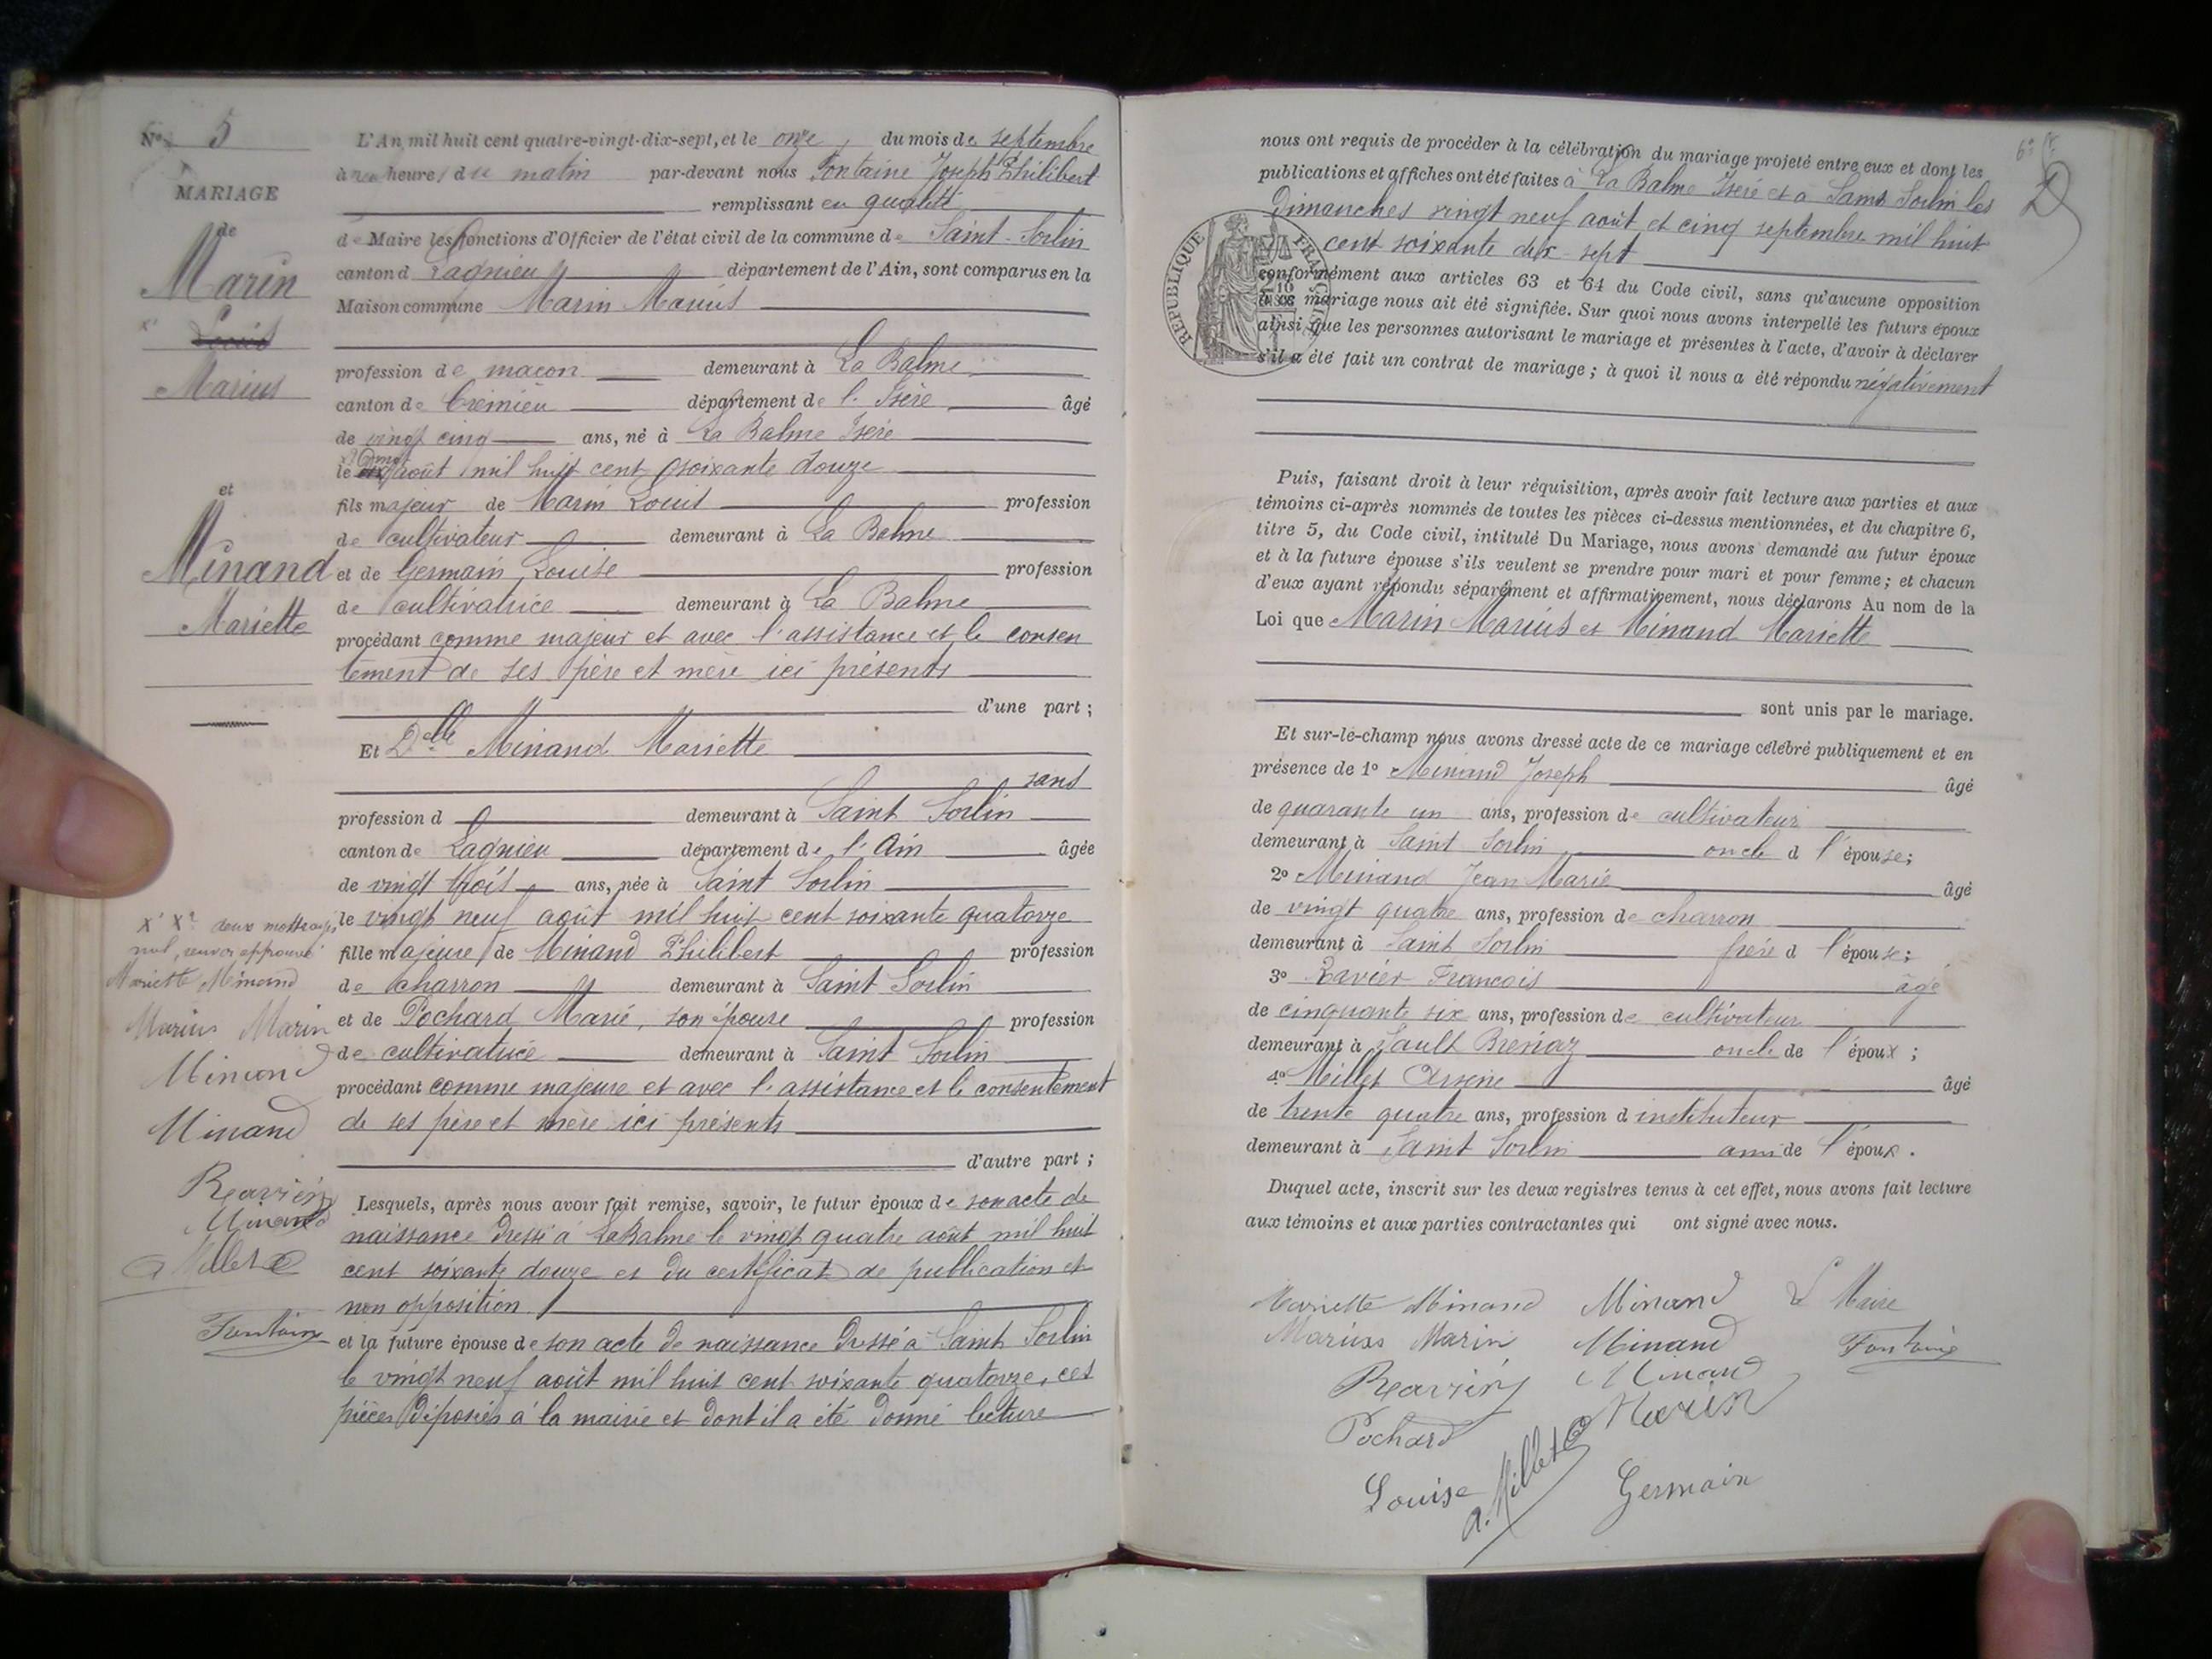 N° 5
MARIAGE
de
Marin
x¹ Louis
Marius
et
Minand
Mariette
x¹ x² deux mots rayés
nul, renvoi approuvé
Mariette Minand
Marius Marin
Minand
Minand
Ravier
Minand
A Millet
Fontaine
L'An mil huit cent quatre-vingt-dix-sept, et le onze du mois de septembre
à heure du matin par-devant nous Fontaine Joseph Philibert
remplissant en qualité
de Maire les fonctions d'Officier de l'état civil de la commune de Saint-Sorlin
canton d Lagnieu département de l'Ain, sont comparus en la
Maison commune Marin Marius
profession de maçon demeurant à La Balme
canton de Crémieu département de l'Isère âgé
de vingt cinq ans, né à La Balme Isère
le août mil huit cent soixante douze
fils majeur de Marin Louis profession
de cultivateur demeurant à La Balme
et de Germain Louise profession
de cultivatrice demeurant à La Balme
procédant comme majeur et avec l'assistance et le consen
tement de ses père et mère ici présents
d'une part ;
Et Delle Minand Mariette
sans
profession d demeurant à Saint Sorlin
canton de Lagnieu département de l'Ain âgée
de vingt trois ans, née à Saint Sorlin
le vingt neuf août mil huit cent soixante quatorze
fille majeure de Minand Philibert profession
de charron demeurant à Saint Sorlin
et de Pochard Marie, son épouse profession
de cultivatrice demeurant à Saint Sorlin
procédant comme majeure et avec l'assistance et le consentement
de ses père et mère ici présents
d'autre part ;
Lesquels, après nous avoir fait remise, savoir, le futur époux de son acte de
naissance dressé à La Balme le vingt quatre août mil huit
cent soixante douze et du certificat de publication et
non opposition
et la future épouse de son acte de naissance dressé à Saint Sorlin
le vingt neuf août mil huit cent soixante quatorze, ces
pièces déposées à la mairie et dont il a été donné lecture
nous ont requis de procéder à la célébration du mariage projeté entre eux et dont les
publications et affiches ont été faites à La Balme Isère et à Saint Sorlin les
dimanches vingt neuf août et cinq septembre mil huit
cent soixante dix-sept
RÉPUBLIQUE FRANÇAISE
conformément aux articles 63 et 64 du Code civil, sans qu'aucune opposition
à ce mariage nous ait été signifiée. Sur quoi nous avons interpellé les futurs époux
ainsi que les personnes autorisant le mariage et présentes à l'acte, d'avoir à déclarer
s'il a été fait un contrat de mariage ; à quoi il nous a été répondu négativement
Puis, faisant droit à leur réquisition, après avoir fait lecture aux parties et aux
témoins ci-après nommés de toutes les pièces ci-dessus mentionnées, et du chapitre 6,
titre 5, du Code civil, intitulé Du Mariage, nous avons demandé au futur époux
et à la future épouse s'ils veulent se prendre pour mari et pour femme ; et chacun
d'eux ayant répondu séparément et affirmativement, nous déclarons Au nom de la
Loi que Marin Marius et Minand Mariette
sont unis par le mariage.
Et sur-le-champ nous avons dressé acte de ce mariage célébré publiquement et en
présence de 1° Minand Joseph âgé
de quarante un ans, profession de cultivateur
demeurant à Saint Sorlin oncle d l'épouse ;
2° Minand Jean Marie âgé
de vingt quatre ans, profession de charron
demeurant à Saint Sorlin frère d l'épouse ;
3° Ravier François âgé
de cinquante six ans, profession de cultivateur
demeurant à Sault Brénaz oncle de l'époux ;
4° Millet Arsène âgé
de trente quatre ans, profession d instituteur
demeurant à Saint Sorlin ami de l'époux.
Duquel acte, inscrit sur les deux registres tenus à cet effet, nous avons fait lecture
aux témoins et aux parties contractantes qui ont signé avec nous.
Mariette Minand Minand Le Maire
Marius Marin Minand Fontaine
Ravier Minand
Pochard Marin
A. Millet
Louise Germain